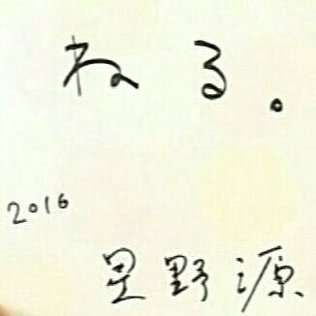 ねる。
2016
星野源